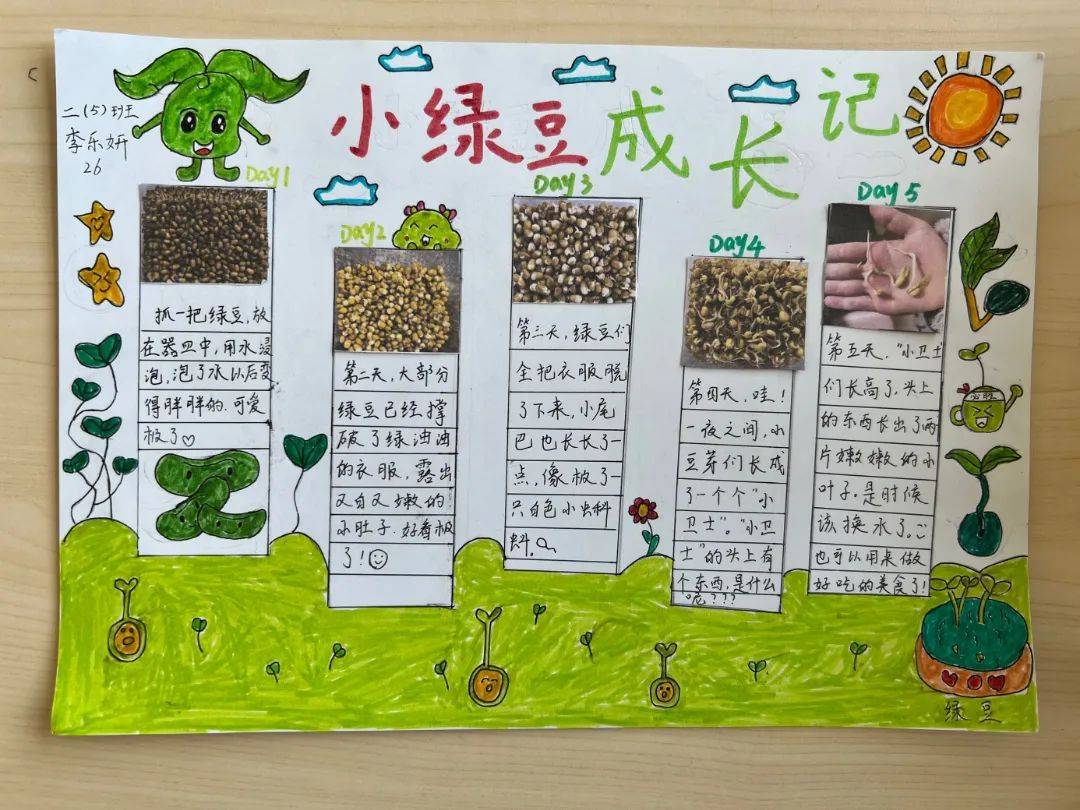 小绿豆成长记
二(5)班
李乐妍
26
Day1
抓一把绿豆,放
在器皿中,用水浸
泡,泡了水以后变
得胖胖的.可爱
极了
Day2
第二天,大部分
绿豆已经撑
破了绿油油
的衣服,露出
又白又嫩的
小肚子.好看极
了!
Day3
第三天,绿豆们
全把衣服脱
了下来,小尾
巴也长长了一
点,像极了一
只白色小虫科
蚪。
Day4
第四天,哇!
一夜之间,小
豆芽们长成
了一个个“小
卫士”。“小卫
士”的头上有
个东西,是什么
呢???
Day5
第五天,“小卫士”
们长高了,头上
的东西长出了两
片嫩嫩的小
叶子.是时候
该换水了。
也可以用来做
好吃的美食了!
绿豆